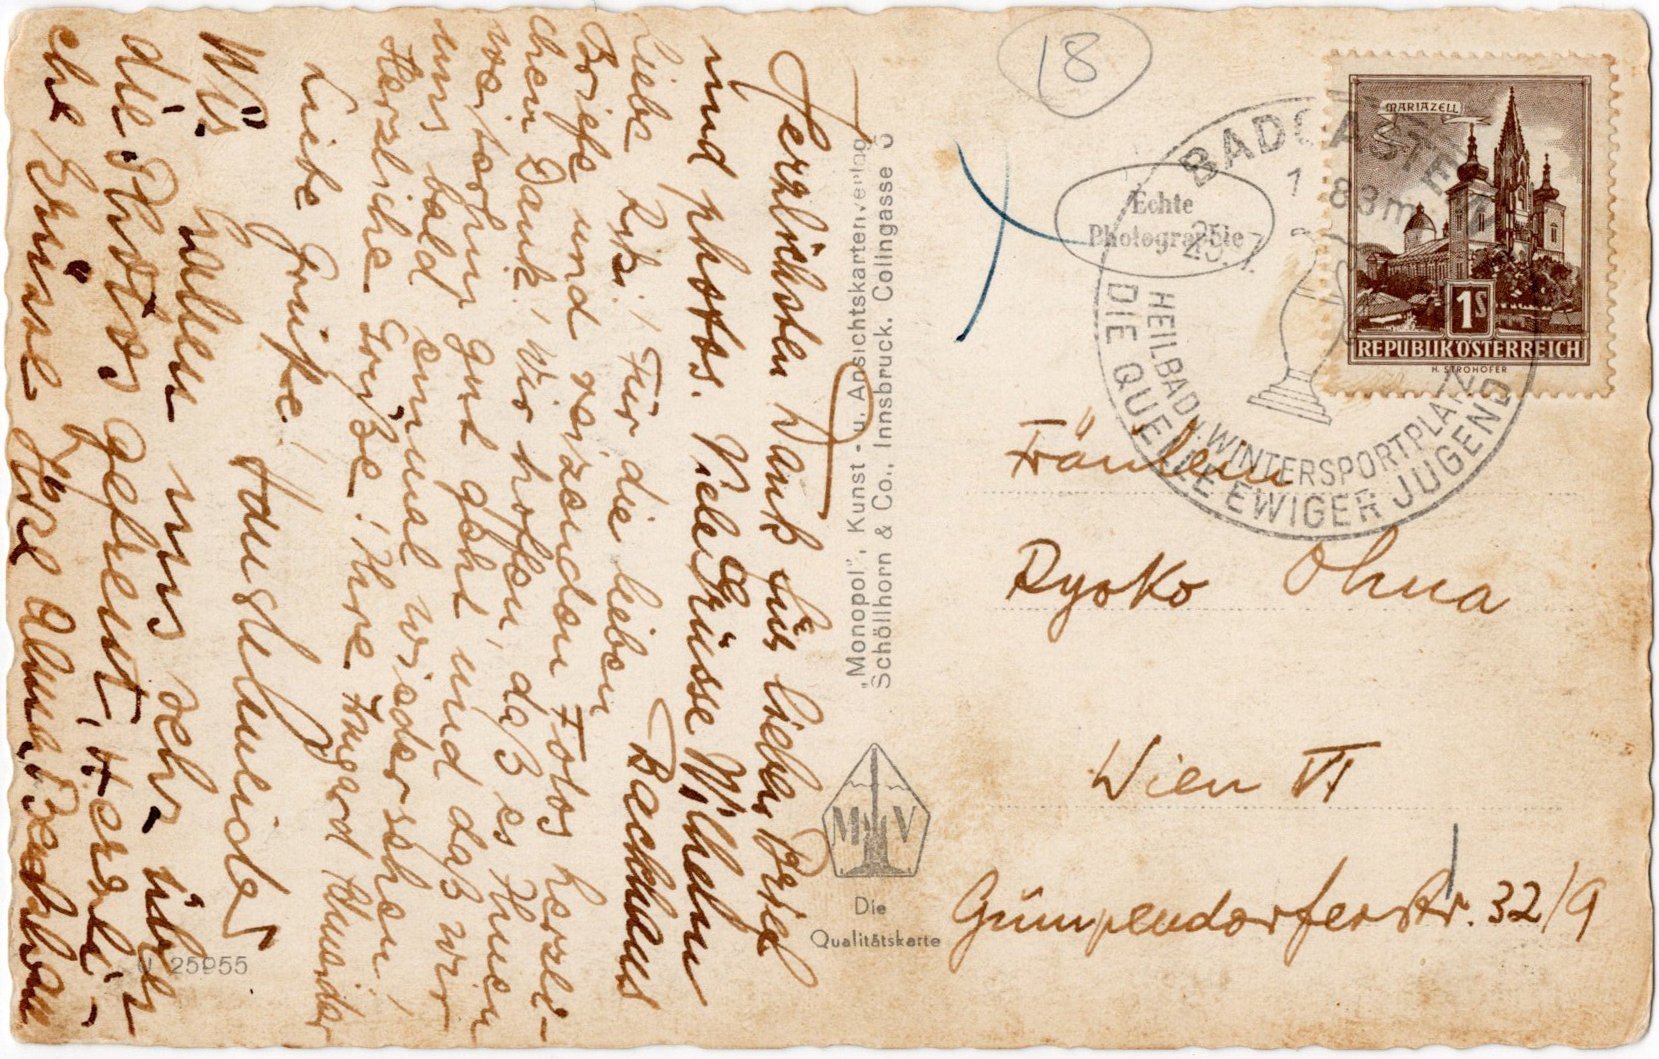 Herzlichsten Dank für lieben Brief
und photos. Viele Grüsse Wilhelm
Backhaus
Liebe Ryk.! Für die lieben
Briefe und reizenden Fotos herzli-
chen Dank! Wir hoffen, daß es Ihnen
weiterhin gut geht und daß wir
uns bald einmal wiedersehen!
Herzliche Grüße! Ihre Irmgard
Liebe Grüße!
Wir haben uns sehr über
die Photos gefreut, Herzli-
che Grüsse Ihre Alma Backhaus
U 25955
„Monopol”, Kunst- u. Ansichtskartenverlag
Schöllhorn & Co., Innsbruck, Colingasse 3
MV
Die
Qualitätskarte
18
Echte
Photographie
BADGASTEIN
1083m
25. 7.
HEILBAD u. WINTERSPORTPLATZ
DIE QUELLE EWIGER JUGEND
MARIAZELL
1S
REPUBLIK ÖSTERREICH
H. STROHOFER
Fräulein
Ryoko Ohna
Wien VI
Gumpendorferstr. 32/9